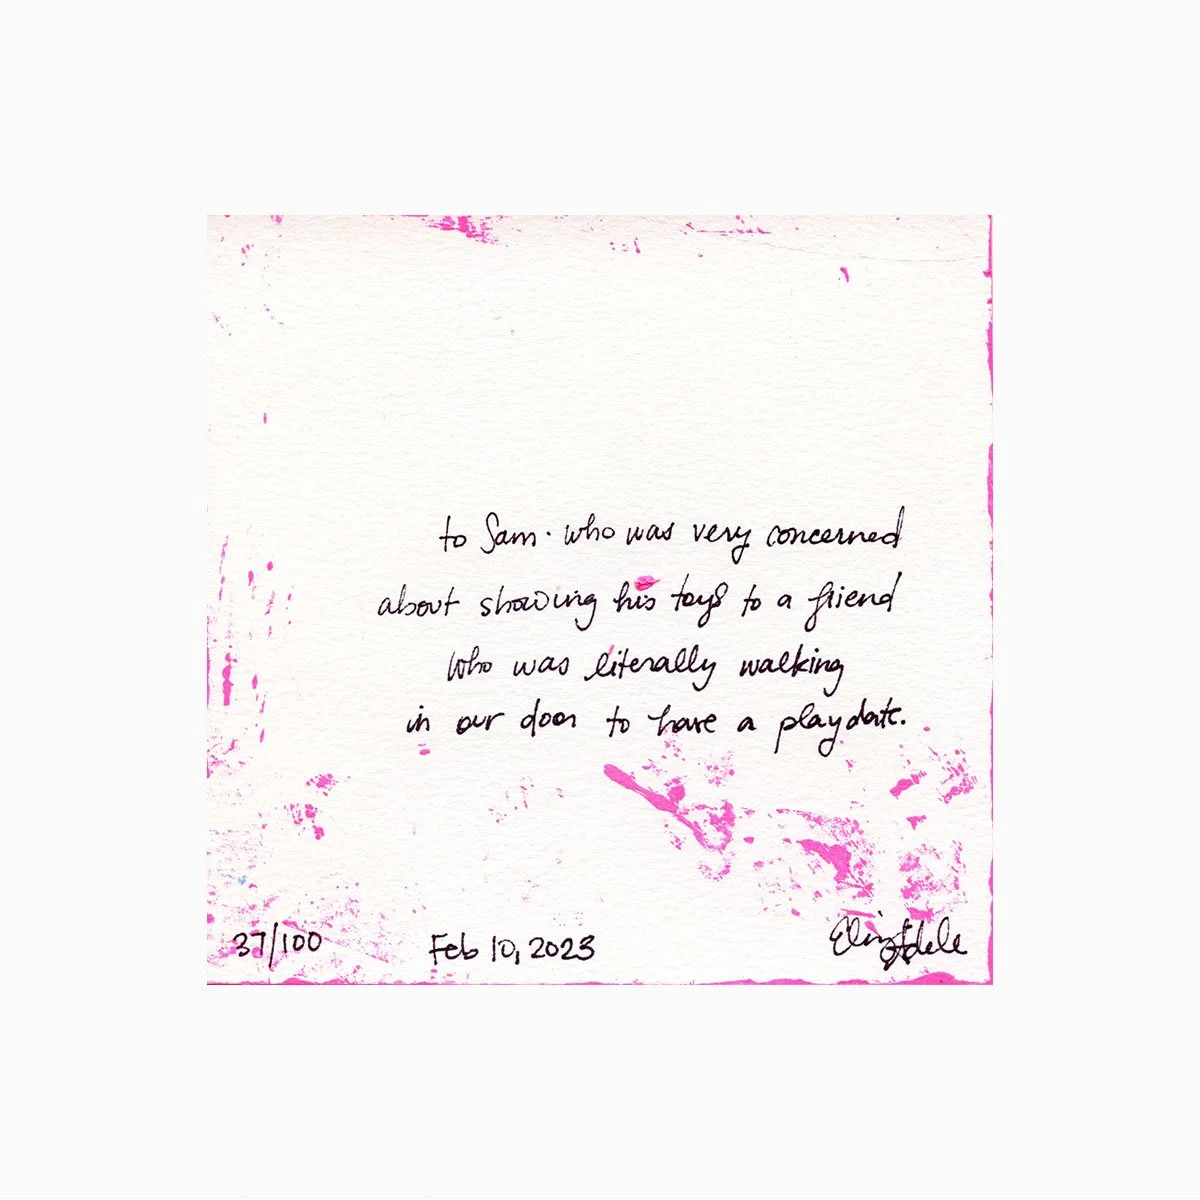 to Sam. who was very concerned
about showing his toys to a friend
who was literally walking
in our door to have a playdate.
37/100 Feb 10, 2023